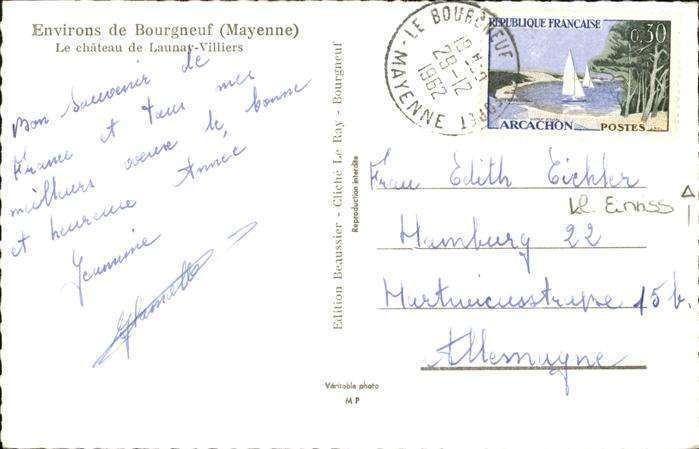 Environs de Bourgneuf (Mayenne)
Le château de Launay-Villiers
Bon Souvenir de
France et tous mes
meilleurs voeux de bonne
et heureuse Année
Jeannine
Edition Beaussier - Cliché Le Ray - Bourgneuf
Reproduction interdite
Véritable photo
M P
LE BOURGNEUF
29-12
1962
MAYENNE
REPUBLIQUE FRANÇAISE
0,30
ARCACHON
POSTES
Frau Edith Eichler
Hamburg 22
15 b
Allemagne